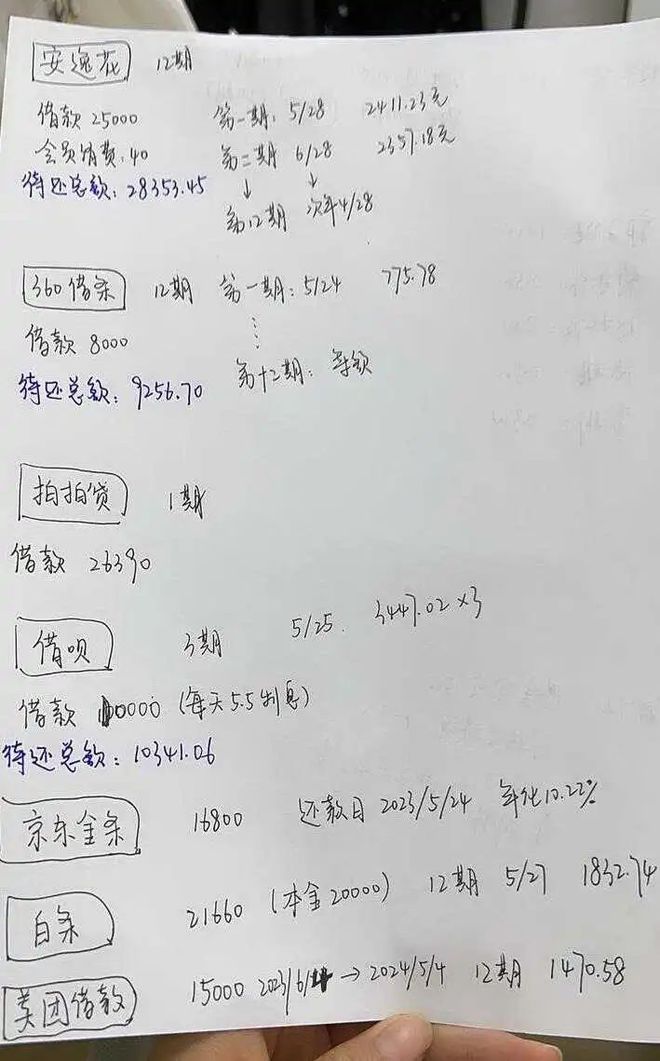 安逸花 12期
借款 25000 第一期: 5/28 2411.23元
会员消费:40 第二期 6/28 2357.18元
待还总额: 28353.45 ↓ ↓
第12期 次年4/28
360借条 12期 第一期: 5/24 775.78
借款 8000
待还总额: 9256.70 第十二期: 等额
拍拍贷 1期
借款 26390
借呗 3期 5/25 3447.02×3
借款 10000 (每天5.5利息)
待还总额: 10341.06
京东金条 16800 还款日 2023/5/24 年化10.22%
白条 21660 (本金20000) 12期 5/27 1832.74
美团借款 15000 2023/6/ → 2024/5/4 12期 1470.58